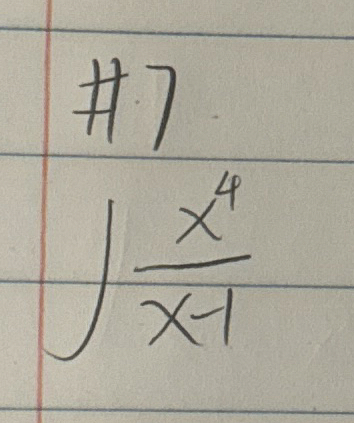 #7
∫ x^4 / x-1